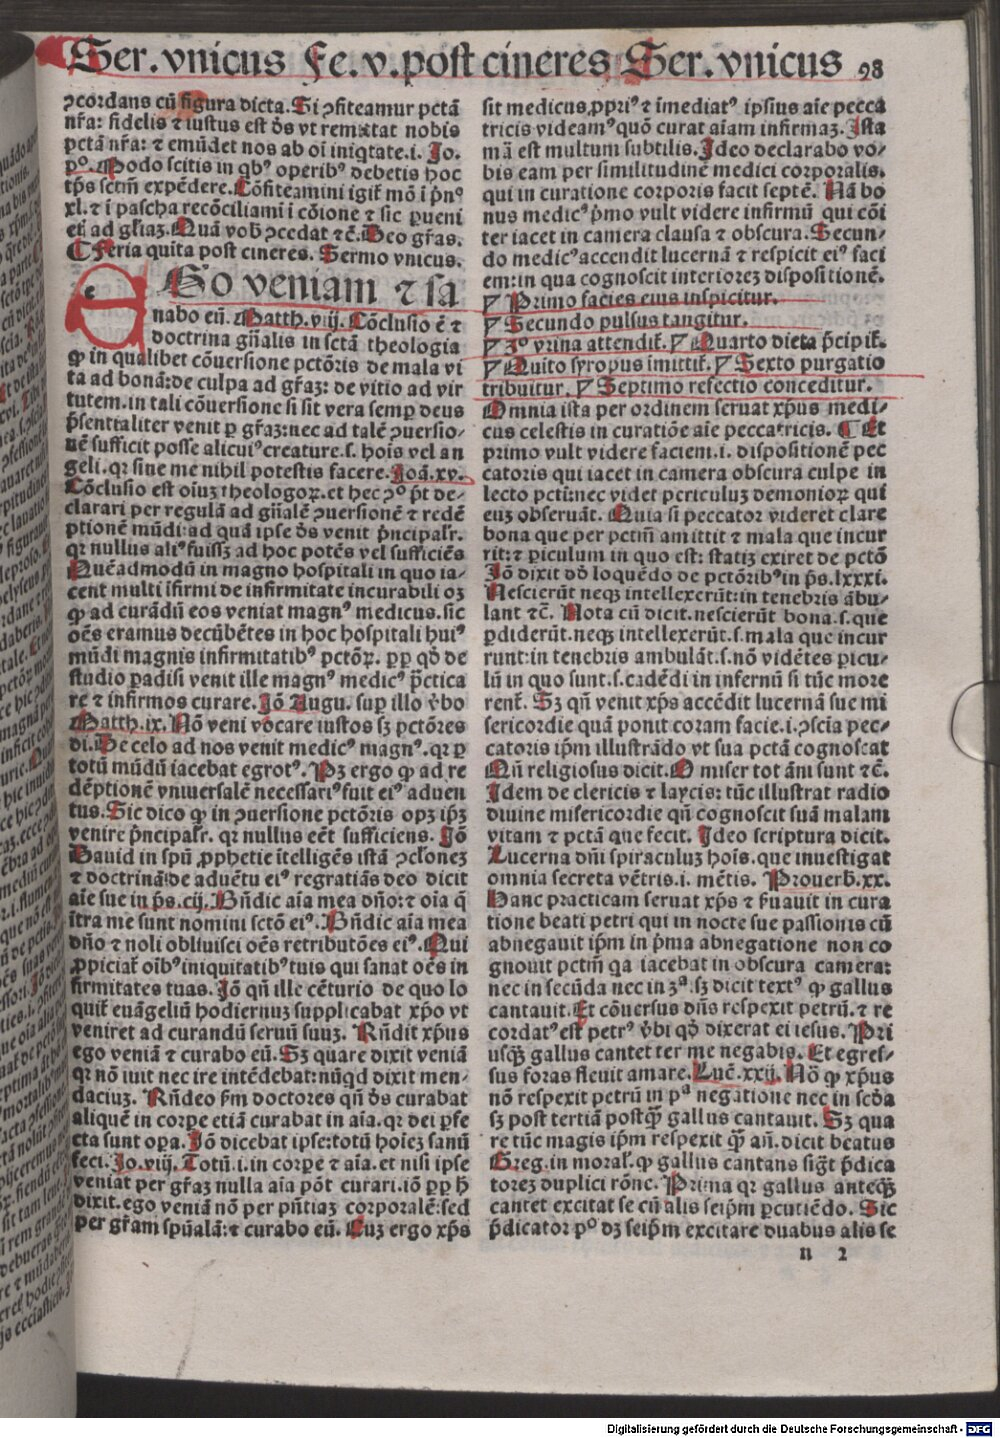 Ser. vnicus Fe. v. post cineres Ser. vnicus 98
ꝯcordans cū figura dicta. Si ꝯfiteamur pctā
nr̄a: fidelis ⁊ iustus est dꝰs vt remittat nobis
pctā nr̄a: ⁊ emūdet nos ab oī iniqtate. i. Jo.
pº. Modo scitis in qbꝰ operibꝰ debetis hoc
tp̄s sctm̄ expēdere. Cōfiteamini igit᷑ mō i pn̄º
xl. ⁊ i pascha recōciliami i cōione ⁊ sic ꝑueni
etꝭ ad gr̄aꝫ. Quā vob̄ ꝯcedat ⁊c̄. Deo gr̄as.
¶ Feria quīta post cineres. Sermo vnicus.
EGo veniam ⁊ sa
nabo eū. Matth. viij. Cōclusio ē ⁊
doctrina gn̄alis in sctā theologia
ꝙ in qualibet cōuersione pctōris de mala vi
ta ad bonā: de culpa ad gr̄aꝫ: de vitio ad vir
tutem. in tali cōuersione si sit vera semꝑ deus
p̄sentialiter venit ꝑ gr̄aꝫ: nec ad talē ꝯuersio-
nē sufficit posse alicuiꝰ creature. s. hoīs vel an
geli. qꝛ sine me nihil potestis facere. Joā. xv.
Cōclusio est oīuꝫ theologoꝝ. et hec ꝯº p̄t de-
clarari per regulā ad gn̄alē ꝯuersionē ⁊ redē
ptionē mūdi: ad quā ipse dꝰs venit p̄ncipalr̄.
qꝛ nullus aliꝰ fuissꝫ ad hoc potēs vel sufficiēs
Quēadmodū in magno hospitali in quo ia-
cent multi īfirmi de infirmitate incurabili oꝫ
ꝙ ad curādū eos veniat magnꝰ medicus. sic
oēs eramus decūbētes in hoc hospitali huiꝰ
mūdi magnis infirmitatibꝰ pctōꝝ. ꝓꝑ qd̄ de
studio padisi venit ille magnꝰ medicꝰ p̄ctica
re ⁊ infirmos curare. Jō Augu. suꝑ illo v̄bo
Matth. ix. Nō veni vocare iustos sꝫ pctōres
di. De celo ad nos venit medicꝰ magnꝰ. qꝛ ꝑ
totū mūdū iacebat egrotꝰ. Pꝫ ergo ꝙ ad re
dēptionē vniuersalē necessariꝰ fuit eiꝰ aduen
tus. Sic dico ꝙ in ꝯuersione pctōris opꝫ ip̄ꝫ
venire p̄ncipalr̄. qꝛ nullus eēt sufficiens. Jō
Dauid in spū ꝓphetie ītelligēs istā ꝯclōneꝫ
⁊ doctrinā de aduētu eiꝰ regratiās deo dicit
aīe sue in ps̄. cij. Bn̄dic aīa mea dn̄o: ⁊ oīa q̄
ītra me sunt nomini sctō eiꝰ. Bn̄dic aīa mea
dn̄o ⁊ noli obliuisci oēs retributōes eiꝰ. Qui
ꝓpiciat᷑ oībꝰ iniquitatibꝰ tuis qui sanat oēs in
firmitates tuas. Jō qn̄ ille cēturio de quo lo
quit᷑ euāgeliū hodiernuꝫ supplicabat xp̄o vt
veniret ad curandū seruū suuꝫ. Rn̄dit xp̄us
ego veniā ⁊ curabo eū. Sꝫ quare dixit veniā
qꝛ nō iuit nec ire intēdebat: nūqd dixit men-
daciuꝫ. Rn̄deo ẜm doctores qn̄ dꝰs curabat
aliquē in corꝑe etiā curabat in aīa. qꝛ dei ꝑfe
cta sunt oꝑa. Jō dicebat ipse: totū hoīeꝫ sanū
feci. Jo. viij. Totū. i. in corꝑe ⁊ aīa. et nisi ipse
veniat per gr̄aꝫ nulla aīa pōt curari. iō ꝓꝑ h̄
dixit. ego veniā nō per pn̄tiaꝫ corporalē: sed
per gr̄am spūalā: ⁊ curabo eū. Cuꝫ ergo xp̄s
sit medicus ꝓpriꝰ ⁊ īmediatꝰ ipsius aīe pecca
tricis videamꝰ quō curat aīam infirmaꝫ. Ista
mā est multum subtilis. Ideo declarabo vo-
bis eam per similitudinē medici corporalis.
qui in curatione corporis facit septē. Nā bo
nus medicꝰ p̄mo vult videre infirmū qui cōi
ter iacet in camera clausa ⁊ obscura. Secun-
do medicꝰ accendit lucernā ⁊ respicit eiꝰ faci
em: in qua cognoscit interioreꝫ dispositionē.
Primo facies eius inspicitur.
Secundo pulsus tangitur.
3º vrina attendit᷑. Quarto dieta p̄cipit᷑.
Quīto syropus imittit᷑. Sexto purgatio
tribuitur. Septimo refectio conceditur.
Omnia ista per ordinem seruat xp̄us medi-
cus celestis in curatiōe aīe peccatricis. ¶ Et
primo vult videre faciem. i. dispositionē pec
catoris qui iacet in camera obscura culpe in
lecto pcti: nec videt periculuꝫ demonioꝝ qui
euꝫ obseruāt. Quia si peccator videret clare
bona que per pctm̄ amittit ⁊ mala que incur
rit: ⁊ ꝑiculum in quo est: statiꝫ exiret de pctō
Jō dixit dd̄ loquēdo de pctōribꝰ in ps̄. lxxxi.
Nescierūt neqꝫ intellexerūt: in tenebris ābu-
lant ⁊c̄. Nota cū dicit. nescierūt bona. s. que
ꝑdiderūt. neqꝫ intellexerūt. s. mala que incur
runt: in tenebris ambulāt. s. nō vidētes ꝑicu-
lū in quo sunt. s. cadēdi in infernū si tūc more
rent᷑. Sꝫ qn̄ venit xp̄s accēdit lucernā sue mi
sericordie quā ponit coram facie. i. ꝯscīa pec-
catoris ip̄m illustrādo vt sua pctā cognoscat
Qn̄ religiosus dicit. O miser tot āni sunt ⁊c̄.
Idem de clericis ⁊ laycis: tūc illustrat radio
diuine misericordie qn̄ cognoscit suā malam
vitam ⁊ pctā que fecit. Ideo scriptura dicit.
Lucerna dn̄i spiraculuꝫ hoīs. que inuestigat
omnia secreta vētris. i. mētis. Prouerb. xx.
Hanc practicam seruat xp̄s ⁊ ẜuauit in cura
tione beati petri qui in nocte sue passionis cū
abnegauit ip̄m in p̄ma abnegatione non co
gnouit pctm̄ qꝛ iacebat in obscura camera:
nec in secūda nec in 3ª. sꝫ dicit textꝰ ꝙ gallus
cantauit. Et cōuersus dn̄s respexit petrū. ⁊ re
cordatꝰ est petrꝰ v̄bi qd̄ dixerat ei iesus. Pri
usqꝫ gallus cantet ter me negabis. Et egres-
sus foras fleuit amare. Luē. xxij. Nō ꝙ xp̄us
nō respexit petrū in pª negatione nec in scd̄a
sꝫ post tertiā postꝙ̄ gallus cantauit. Sꝫ qua
re tūc magis ip̄m respexit ꝙ̄ an̄. dicit beatus
Greg. in moral᷑. ꝙ gallus cantans sigt̄ p̄dica
toreꝫ duplici rōne. Prima qꝛ gallus anteqꝫ
cantet excitat se cū alis seip̄m ꝑcutiēdo. Sic
p̄dicator pº dꝫ seip̄m excitare duabus alis se
n 2
Digitalisierung gefördert durch die Deutsche Forschungsgemeinschaft - DFG